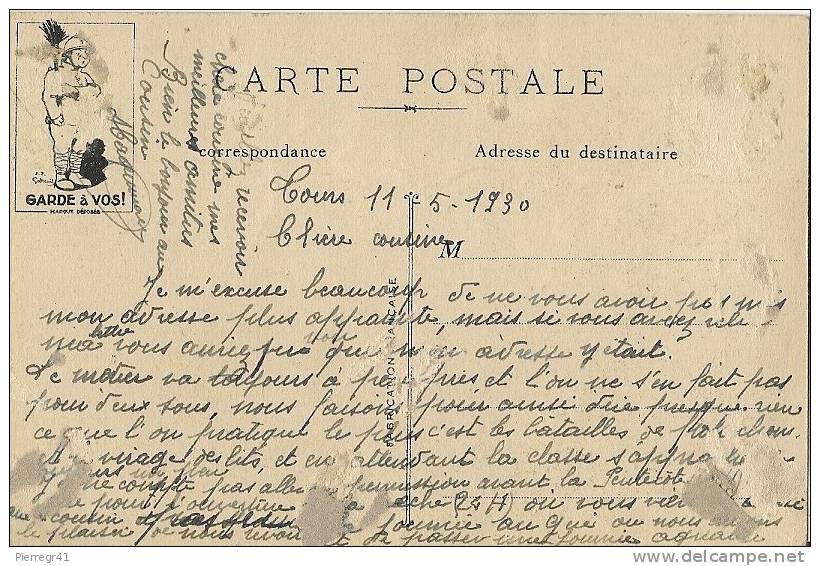 CARTE POSTALE
correspondance
Adresse du destinataire
GARDE à VOS!
MARQUE DÉPOSÉE
FABRICATION FRANÇAISE
M
Tours 11-5-1930
Chère cousine
Je m'excuse beaucoup de ne vous avoir pas mis
mon adresse plus apparente, mais si vous aviez relu
ma lettre vous auriez pu voir que mon adresse y était.
Le métier va toujours à peu près et l'on ne s'en fait pas
pour deux sous, nous faisons pour ainsi dire presque rien
ce que l'on pratique le plus c'est les batailles de
virage des lits, et en attendant la classe
ne compte pas aller permission avant la Pentecôte
pour l'ouverture (24 H) où vous
cousin journée au Gué ou nous aurons
le plaisir de nous revoir et de passer une journée agréable
recevoir
chère cousine mes
meilleures amitiés
Bien le bonjour au
Cousin
Pierregr41
www.delcampe.net